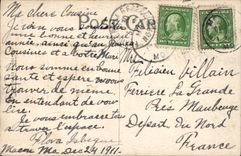 Ma chère Cousine
POST CARD
Je viens vous
bonne et heureuse
année, ainsi qu'au
Cousines et a votre Mari,
Nous sommes en bonne
santé et espère vous
trouver de même.
En entendant de vous
lire
Je vous embrasse tous
a travers l'espace
Flora Lebègue
Macon Mo. Dec 24, 1911.
Félicien Villain
Ferriere La Grande
Près Maubeuge
Depart. du Nord
France